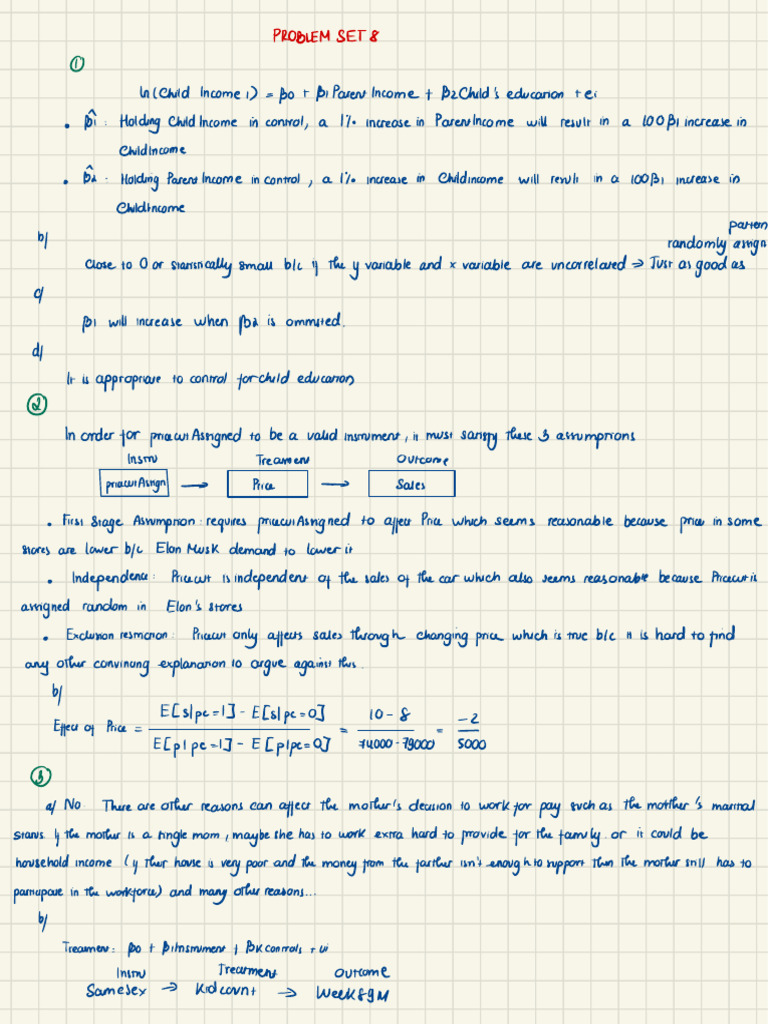 PROBLEM SET 8
①
ln(Child Income i) = β0 + β1 Parent Income + β2 Child's education + ei
• β̂1 : Holding Child Income in control, a 1% increase in Parent Income will result in a 100β1 increase in
Child Income
• β̂2 : Holding Parent Income in control, a 1% increase in Child income will result in a 100β1 increase in
Child Income
b/
randomly assign
close to 0 or statistically small b/c if the y variable and x variable are uncorrelated ⇒ Just as good as
c/
β1 will increase when β2 is ommited.
d/
It is appropriate to control for child education
②
In order for pricecut Assigned to be a valid instrument, it must satisfy these 3 assumptions
Instru Treament Outcome
pricecut Assign → Price → Sales
• First Stage Assumption: requires pricecut Assigned to affect Price which seems reasonable because price in some
stores are lower b/c Elon Musk demand to lower it
• Independence: Pricecut is independent of the sales of the car which also seems reasonable because Pricecut is
assigned random in Elon's stores
• Exclusion restriction: Pricecut only affects sales through changing price which is true b/c it is hard to find
any other convincing explanation to argue against this.
b/
Effect of Price = E[s|pc=1] - E[s|pc=0] / E[p|pc=1] - E[p|pc=0] = 10 - 8 / 74000 - 79000 = -2 / 5000
③
a/ No. There are other reasons can affect the mother's decision to work for pay such as the mother's marital
status. If the mother is a single mom, maybe she has to work extra hard to provide for the family. or it could be
household income (if their house is very poor and the money from the farther isn't enough to support then the mother still has to
participate in the workforce) and many other reasons...
b/
Treament: β0 + β1 Instrument + βK controls + ui
Instru Treatment Outcome
Samesex → Kidcount → Weeks9M